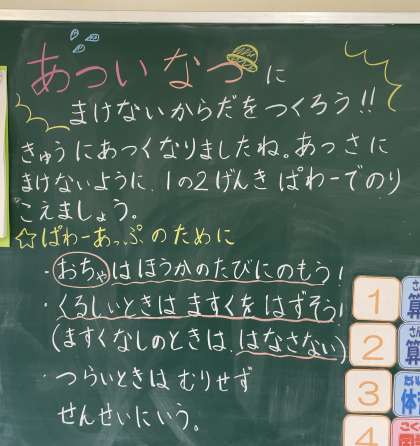 あついなつに
まけないからだをつくろう!!
きゅうにあつくなりましたね。あっさに
まけないように、1の2げんき ぱわーでのり
こえましょう。
☆ぱわーあっぷのために
・おちゃはほうかのたびにのもう!
・くるしいときは ますくを はずそう!
(ますくなしのときは、はなさない)
・つらいときは むりせず
せんせいにいう。
1
算
2
算
3
体
4